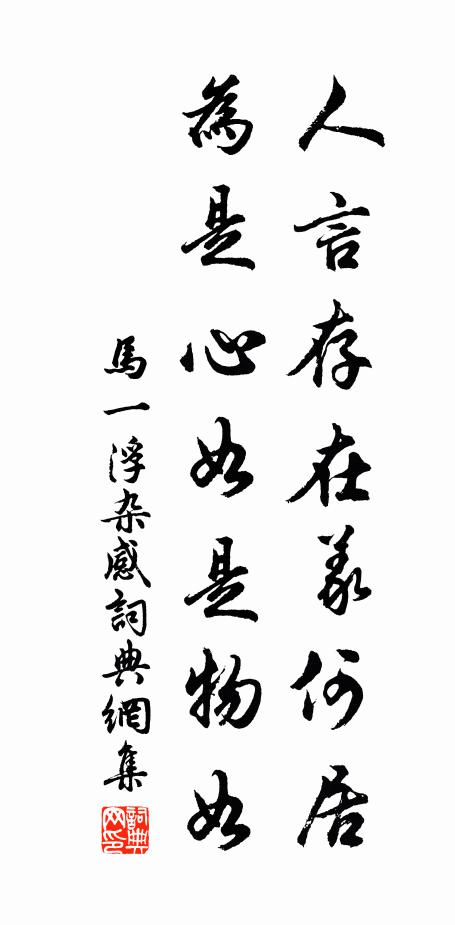 人言存在義何居
為是心如是物如
馬一浮杂感詞典網集
詞典网印